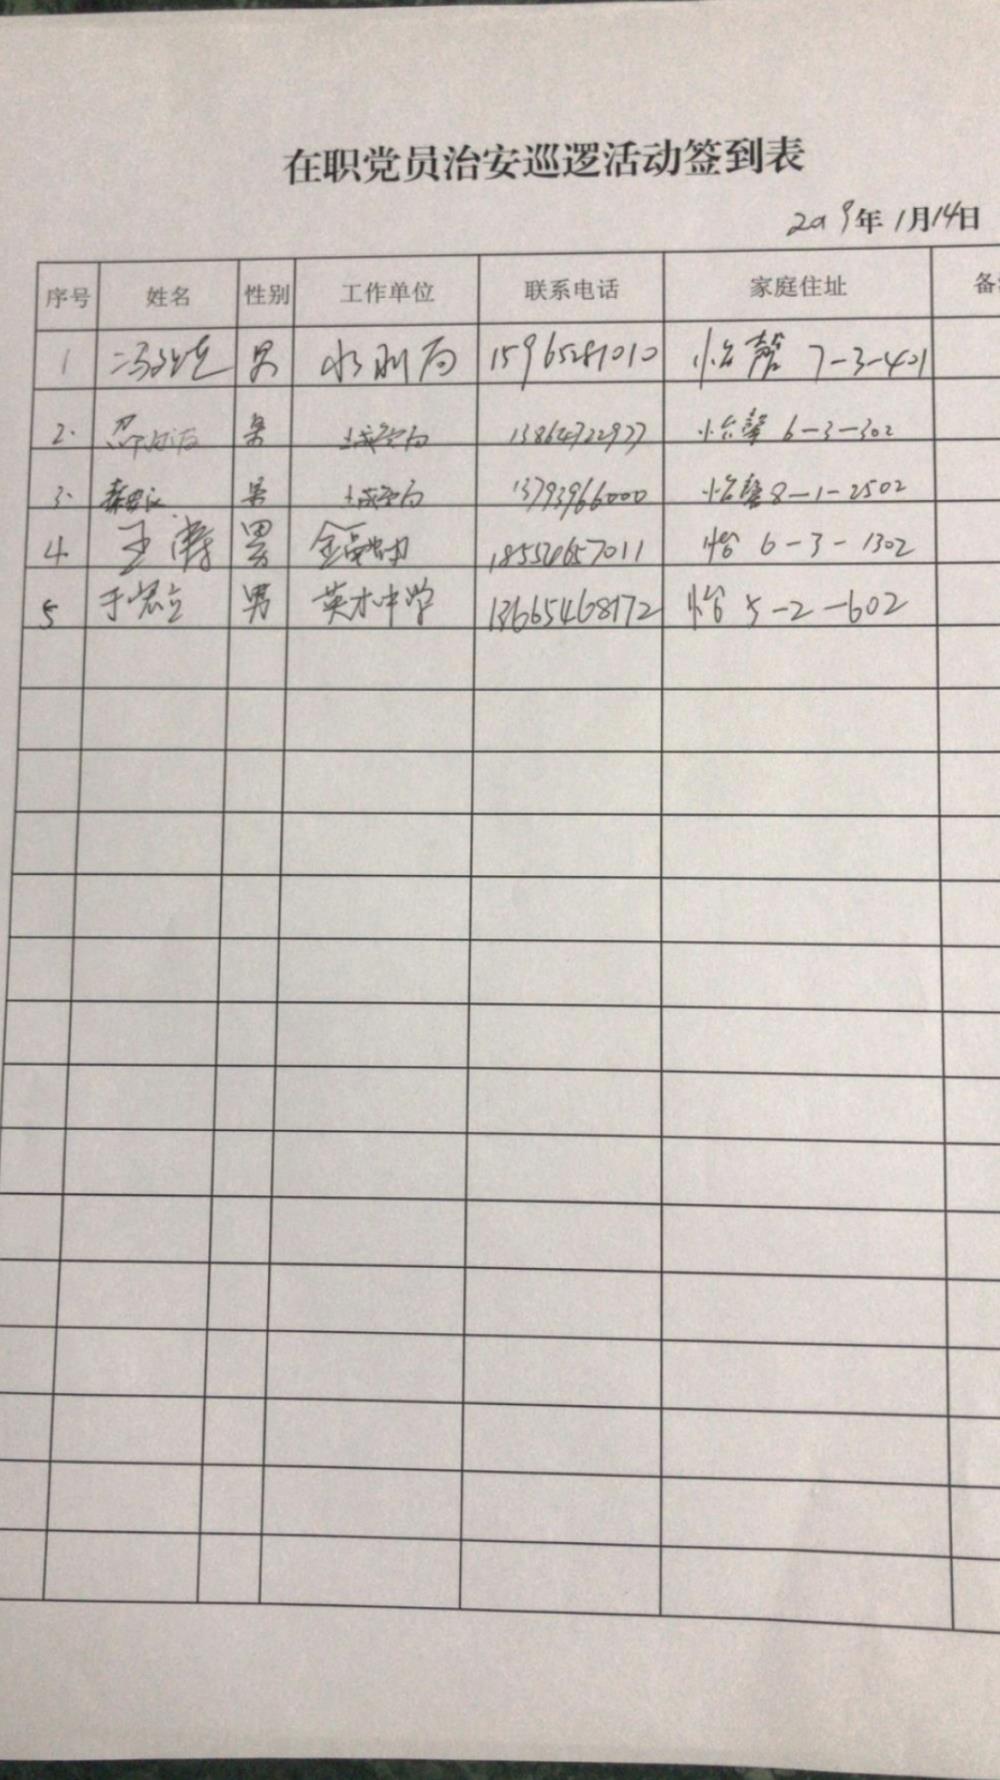 在职党员治安巡逻活动签到表
2019年1月14日
序号 姓名 性别 工作单位 联系电话 家庭住址 备
1 男 水利局 15965281010 怡馨 7-3-401
2. 男 13864722977 怡馨 6-3-302
3. 男 13793966000 怡馨 8-1-2502
4 王涛 男 18554657011 怡 6-3-1302
5 于宏立 男 英才中学 13665468172 怡 5-2-602